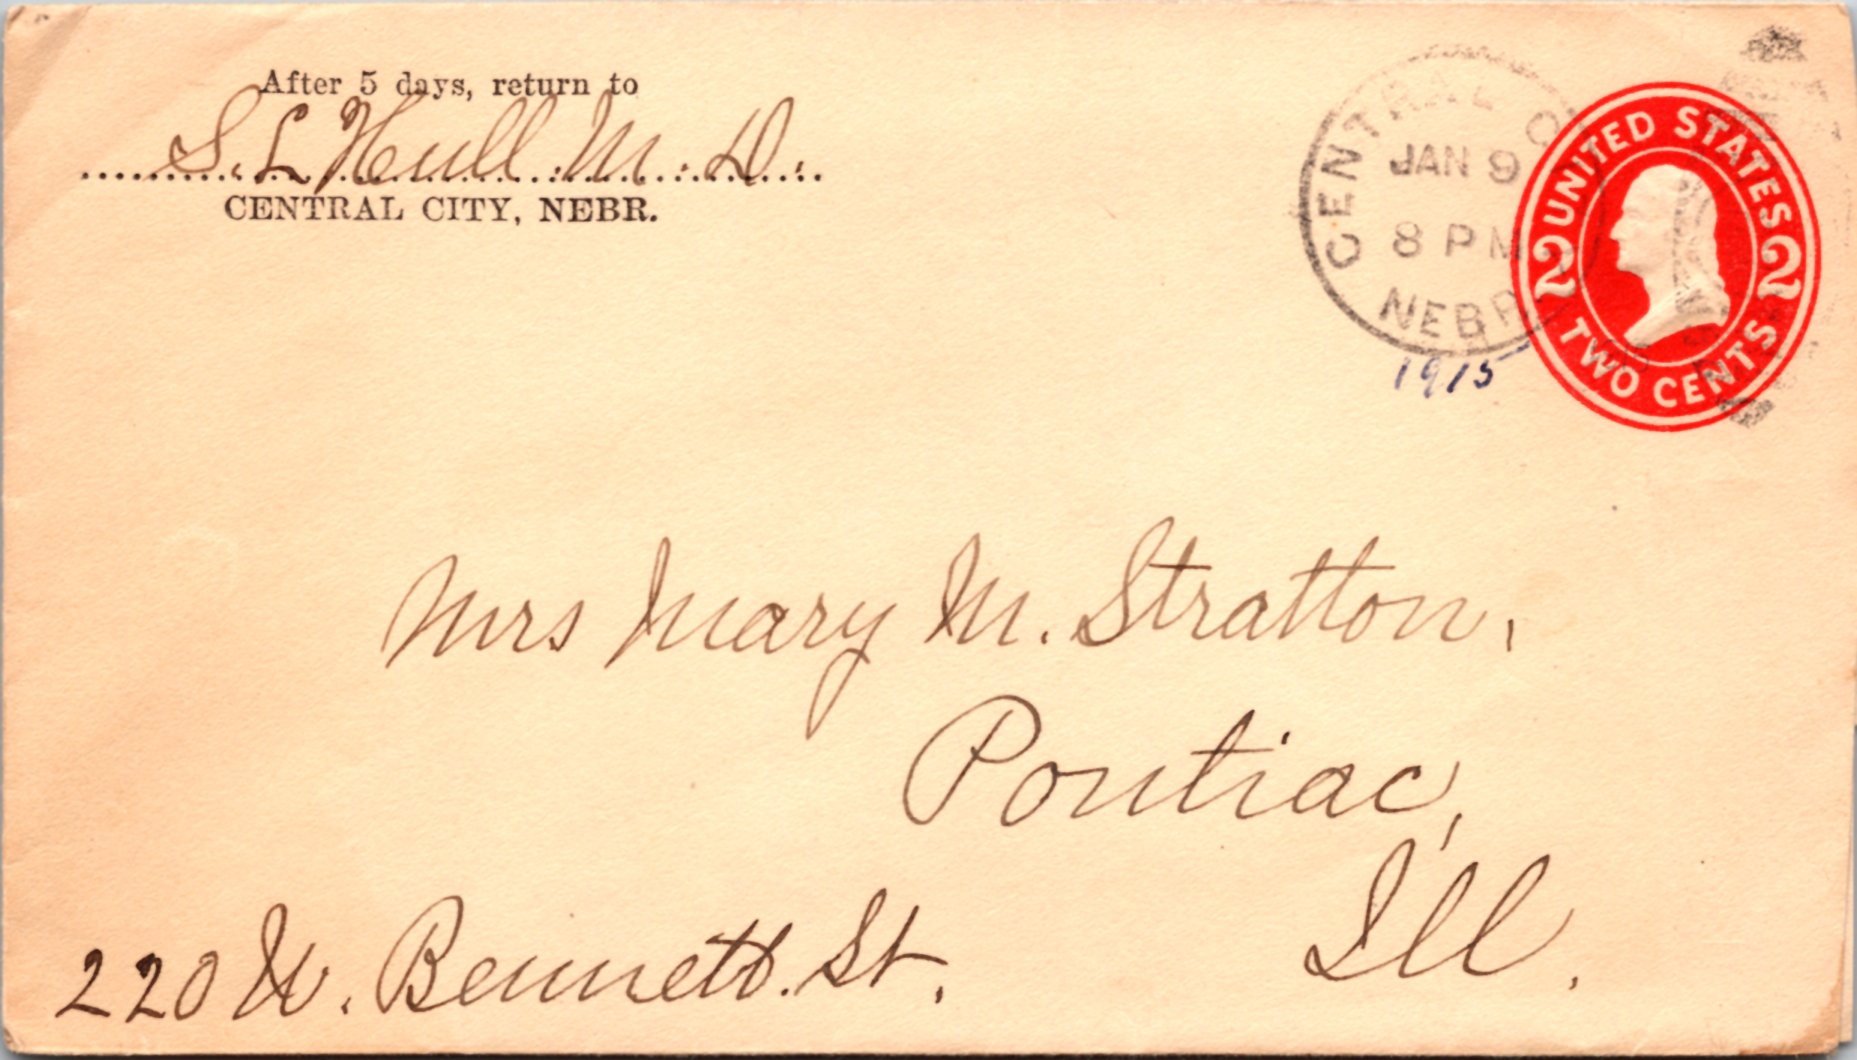 After 5 days, return to
S. L. Hull. M. D.
CENTRAL CITY, NEBR.
CENTRAL C
JAN 9
8 PM
NEBR
1915
UNITED STATES
2 2
TWO CENTS
Mrs Mary M. Stratton,
Pontiac,
Ill.
220 W. Bennett. St.